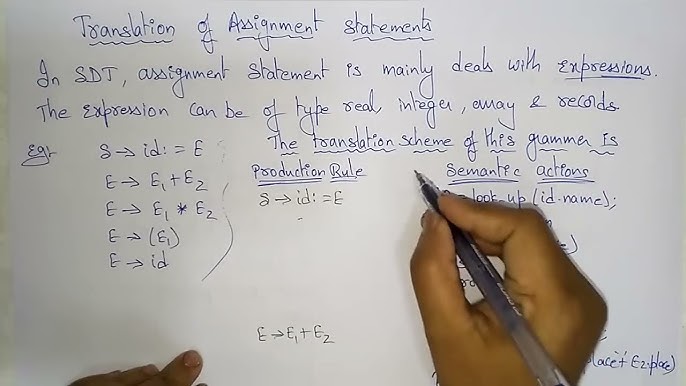 Translation of Assignment statements
In SDT, assignment statement is mainly deals with expressions.
The expression can be of type real, integer, array & records.
Eg:- S → id := E
E → E1 + E2
E → E1 * E2
E → (E1)
E → id
The translation scheme of this grammer is
production Rule semantic actions
S → id := E look-up (id.name);
E → E1 + E2
place '+' E2.place)